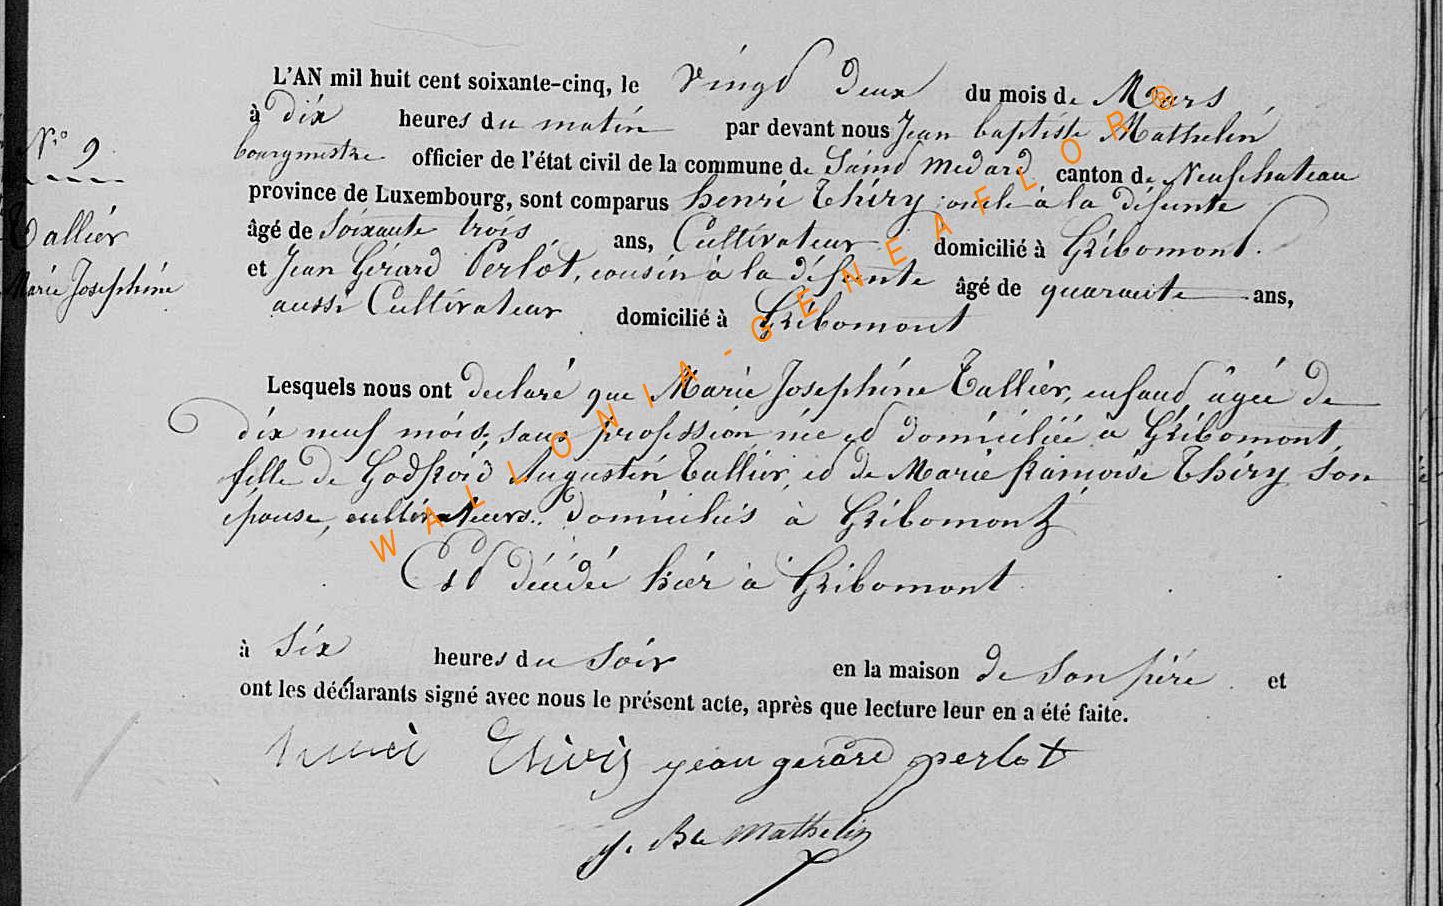 L'AN mil huit cent soixante-cinq, le vingt deux du mois de Mars
à dix heures du matin par devant nous Jean baptiste Mathelin
bourgmestre officier de l'état civil de la commune de Saint Medard canton de Neufchateau
province de Luxembourg, sont comparus henri Thiry oncle à la défunte
âgé de Soixante trois ans, Cultivateur domicilié à Gribomont.
et Jean Gérard Perlot, cousin à la défunte âgé de quarante ans,
aussi Cultivateur domicilié à Gribomont
N° 9
Tallier
Marie Josephine
Lesquels nous ont declaré que Marie Josephine Tallier, enfant âgée de
dix neuf mois, sans profession née et domiciliée a Gribomont,
fille de Godfroid Augustin Tallier, et de Marie françoise Thiry son
épouse, cultivateurs. domiciliés à Gribomont
Est décédée hier à Gribomont
à Six heures du Soir en la maison de Son père et
ont les déclarants signé avec nous le présent acte, après que lecture leur en a été faite.
henri Thiry jean gerard perlot
J. Bte Mathelin
WALLONIA-GENEAFLOR®